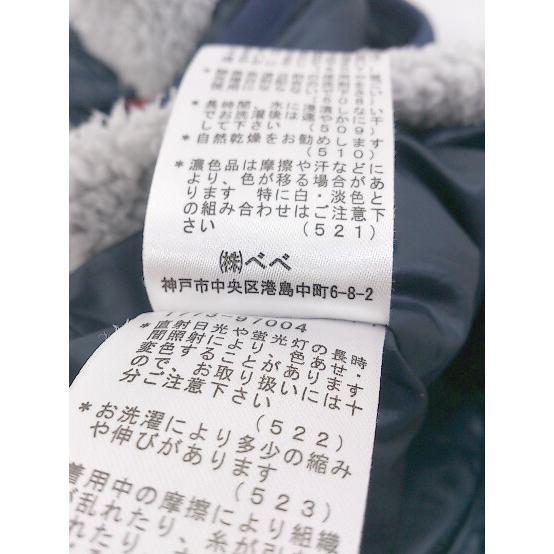 *長時間、水に浸
でお洗濯後は速
して下さい (5
*自然乾燥をお勧めしま
(510)
*濃色品は摩擦や汗などがあと
より、色が移る場合にあ
ります 特に白・淡色下
の組み合わせはご注意
さい (521)
㈱べべ
神戸市中央区港島中町6-8-2
1773-97004
*直射日光や蛍光灯の長時
間照射により、色あせ・
変色することがあります
ので、お取り扱いには十
分ご注意下さい
(522)
*お洗濯により多少の縮み
や伸びがあります
(523)
着用中の摩擦により組織
が乱れたり、糸が引